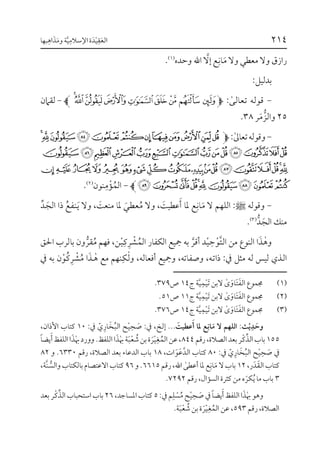 ٢١٤ العَقِيْدَة الإسلاميَّة ومَذَاهِبها
رازق ولا معطي ولا مَانِعَ إلَّا الله وحده(١).
بدليل:
- قوله تعالىٰ: ﴿ وَلَئِن سَأَلْتَهُم مَّنْ خَلَقَ السَّمَٰوَٰتِ وَالْأَرْضَ لَيَقُولُنَّ اللَّهُ ﴾ - لقمان
٢٥ والزُّمَر ٣٨.
- وقوله تعالىٰ: ﴿ قُل لِّمَنِ الْأَرْضُ وَمَن فِيهَا إِن كُنتُمْ تَعْلَمُونَ ٨٤ سَيَقُولُونَ لِلَّهِ
قُلْ أَفَلَا تَذَكَّرُونَ ٨٥ قُلْ مَن رَّبُّ السَّمَٰوَٰتِ السَّبْعِ وَرَبُّ الْعَرْشِ الْعَظِيمِ ٨٦ سَيَقُولُونَ لِلَّهِ
قُلْ أَفَلَا تَتَّقُونَ ٨٧ قُلْ مَن بِيَدِهِ مَلَكُوتُ كُلِّ شَيْءٍ وَهُوَ يُجِيرُ وَلَا يُجَارُ عَلَيْهِ
إِن كُنتُمْ تَعْلَمُونَ ٨٨ سَيَقُولُونَ لِلَّهِ قُلْ فَأَنَّىٰ تُسْحَرُونَ ٨٩ ﴾ - المُؤْمِنون(٢).
- وقوله ﷺ: اللهم لا مَانِعَ لما أَعطيتَ، ولا مُعطيَ لما منعتَ، ولا يَنفعُ ذا الجَدِّ
منك الجَدُّ(٣).
وهَٰذا النوع من التَّوْحِيْد أقرَّ به جميع الكفار المُشْرِكِيْن، فهم مُقرُّون بالرب الحق
الذي ليس له مثل في: ذاته، وصفاته، وجميع أفعاله، ولٰكِنهم مع هَٰذا مُشْرِكُوْن به في
(١) مجموع الفَتَاوَىٰ لابن تَيْمِيَّة ج١٤ ص٣٧٩.
(٢) مجموع الفَتَاوَىٰ لابن تَيْمِيَّة ج١١ ص٥١.
(٣) مجموع الفَتَاوَىٰ لابن تَيْمِيَّة ج١٤ ص٣٧٦.
وحَدِيْث: اللهم لا مَانِعَ لما أَعطيتَ... إلخ، في: صَحِيْح البُخَارِيّ في: ١٠ كتاب الأذان،
١٥٥ باب الذِّكر بعد الصلاة، رقم ٨٤٤، عن المُغِيْرَة بن شُعْبَة بهَٰذا اللفظ. وورد بهَٰذا اللفظ أيضاً
في صَحِيْح البُخَارِيّ في: ٨٠ كتاب الدَّعَوَات، ١٨ باب الدعاء بعد الصلاة، رقم ٦٣٣٠. و ٨٢
كتاب القَدَر، ١٢ باب لا مَانِعَ لما أعطىٰ الله، رقم ٦٦١٥. و ٩٦ كتاب الاعتصام بالكتاب والسُّنَّة،
٣ باب ما يُكرَه من كثرة السؤال، رقم ٧٢٩٢.
وهو بهَٰذا اللفظ أيضاً في صَحِيْح مُسْلِم في: ٥ كتاب المساجد، ٢٦ باب استحباب الذِّكر بعد
الصلاة، رقم ٥٩٣، عن المُغِيْرَة بن شُعْبَة.